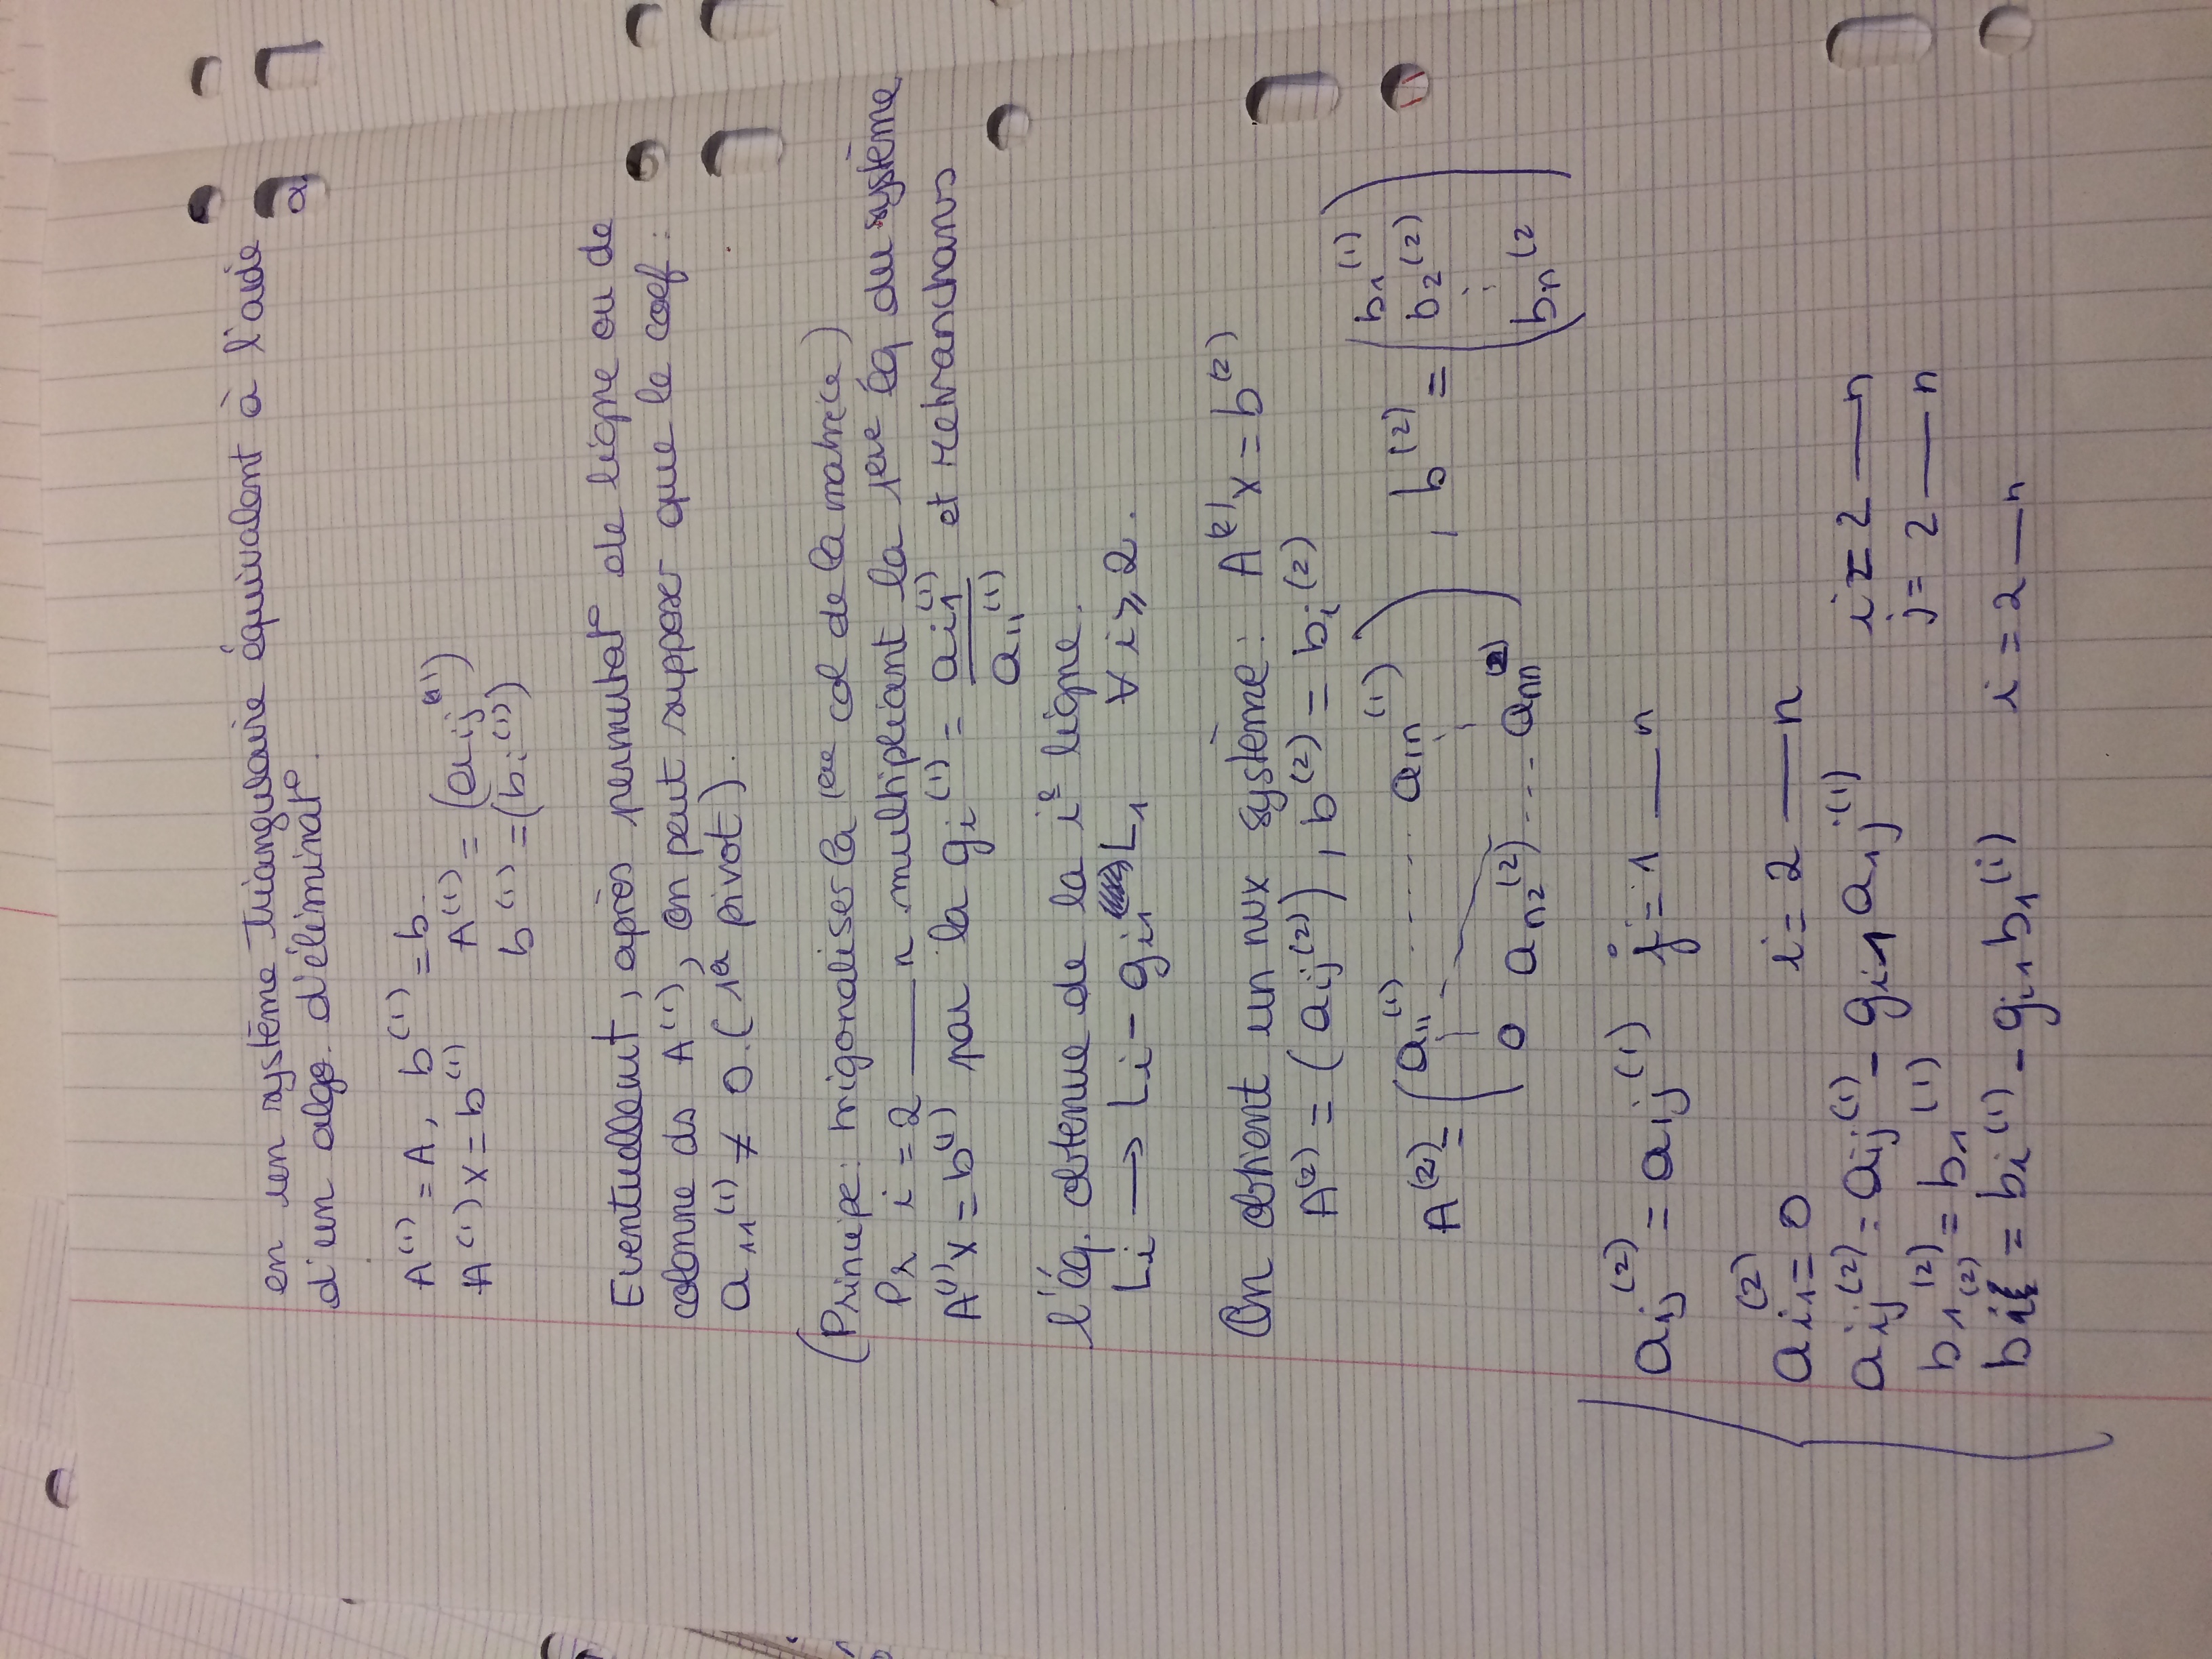 en un système triangulaire équivalent à l'aide
d'un algo. d'éliminat°.
A⁽¹⁾ = A, b⁽¹⁾ = b.
A⁽¹⁾x = b⁽¹⁾ A⁽¹⁾ = (aij⁽¹⁾)
b⁽¹⁾ = (bi⁽¹⁾)
Eventuellemt, après permutat° de ligne ou de
colonne ds A⁽¹⁾, on peut supposer que le coef :
a₁₁⁽¹⁾ ≠ 0. (1er pivot).
(Principe: trigonaliser la 1ere col de la matrice)
Pr i = 2 — n multipliant la 1ere éq du système
A⁽¹⁾x = b⁽¹⁾ par la gi⁽¹⁾ = ai1⁽¹⁾ / a11⁽¹⁾ et retranchans
l'éq. obtenue de la ie ligne.
Li → Li - gi1 L1 ∀ i ≥ 2.
On obtient un nvx système : A⁽²⁾x = b⁽²⁾
A⁽²⁾ = (aij⁽²⁾), b⁽²⁾ = bi⁽²⁾
A⁽²⁾ = ( a11⁽¹⁾ ----- a1n⁽¹⁾ ) , b⁽²⁾ = ( b1⁽¹⁾
b2⁽²⁾
⋮
0 an2⁽²⁾ ---- ann⁽²⁾ bn⁽² )
a1j⁽²⁾ = a1j⁽¹⁾ j = 1 — n
ai1⁽²⁾ = 0 i = 2 — n
aij⁽²⁾ = aij⁽¹⁾ - gi1 a1j⁽¹⁾ i = 2 — n
j = 2 — n
b1⁽²⁾ = b1⁽¹⁾
bi⁽²⁾ = bi⁽¹⁾ - gi1 b1⁽ⁱ⁾ i = 2 — n